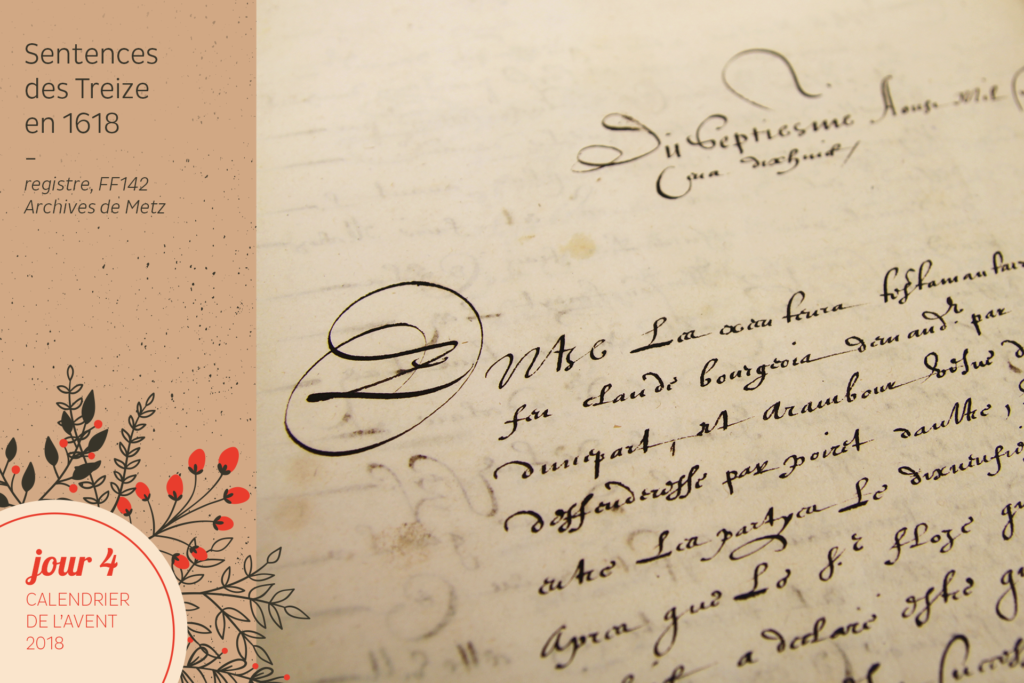 Sentences
des Treize
en 1618
–
registre, FF142
Archives de Metz
jour 4
CALENDRIER
DE L'AVENT
2018
Du Septiesme Aoust Mil
Entre Les executeurs testamantair
feu claude bourgeois demandr par
dunepart, et arambour vefue
deffenderesse par poiret daultre,
entre Les partyes Le dixneufie
Apres que Le Sr floze
a declaré estre